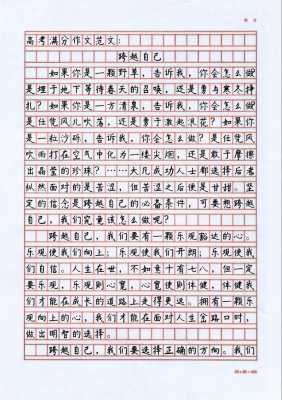 高考满分作文范文：
跨越自己
如果你是一颗野草，告诉我，你会怎么做
是埋于地下等待春天的召唤，还是勇与寒冬挣
扎？如果你是一方清泉，告诉我，你会怎么做
是任凭风儿吹荡，还是勇于激起浪花？如果你
是一粒沙砾，告诉我，你会怎么做？是任凭风
吹雨打在空气中化为一缕尖烟，还是敢于摩擦
出晶莹的珍珠？……大凡成功人士都选择后者
纵然面对的是苦涩，但苦涩之后便是甘甜。坚
定的信念是跨越自己的必备条件，可要想跨越
自己，我们究竟该怎么做呢？
跨越自己，我们要有一颗乐观豁达的心。
乐观使我们向上；乐观使我们开朗；乐观使我
们自信。人生在世，不如意十有七八，但一定
要乐观，乐观则心宽，心宽使则体健，体健我
们才能在成长的道路上走得更远。拥有一颗乐
观向上的心，我们才能在面对人生岔路口时，
做出明智的选择。
跨越自己，我们要选择正确的方向。我们